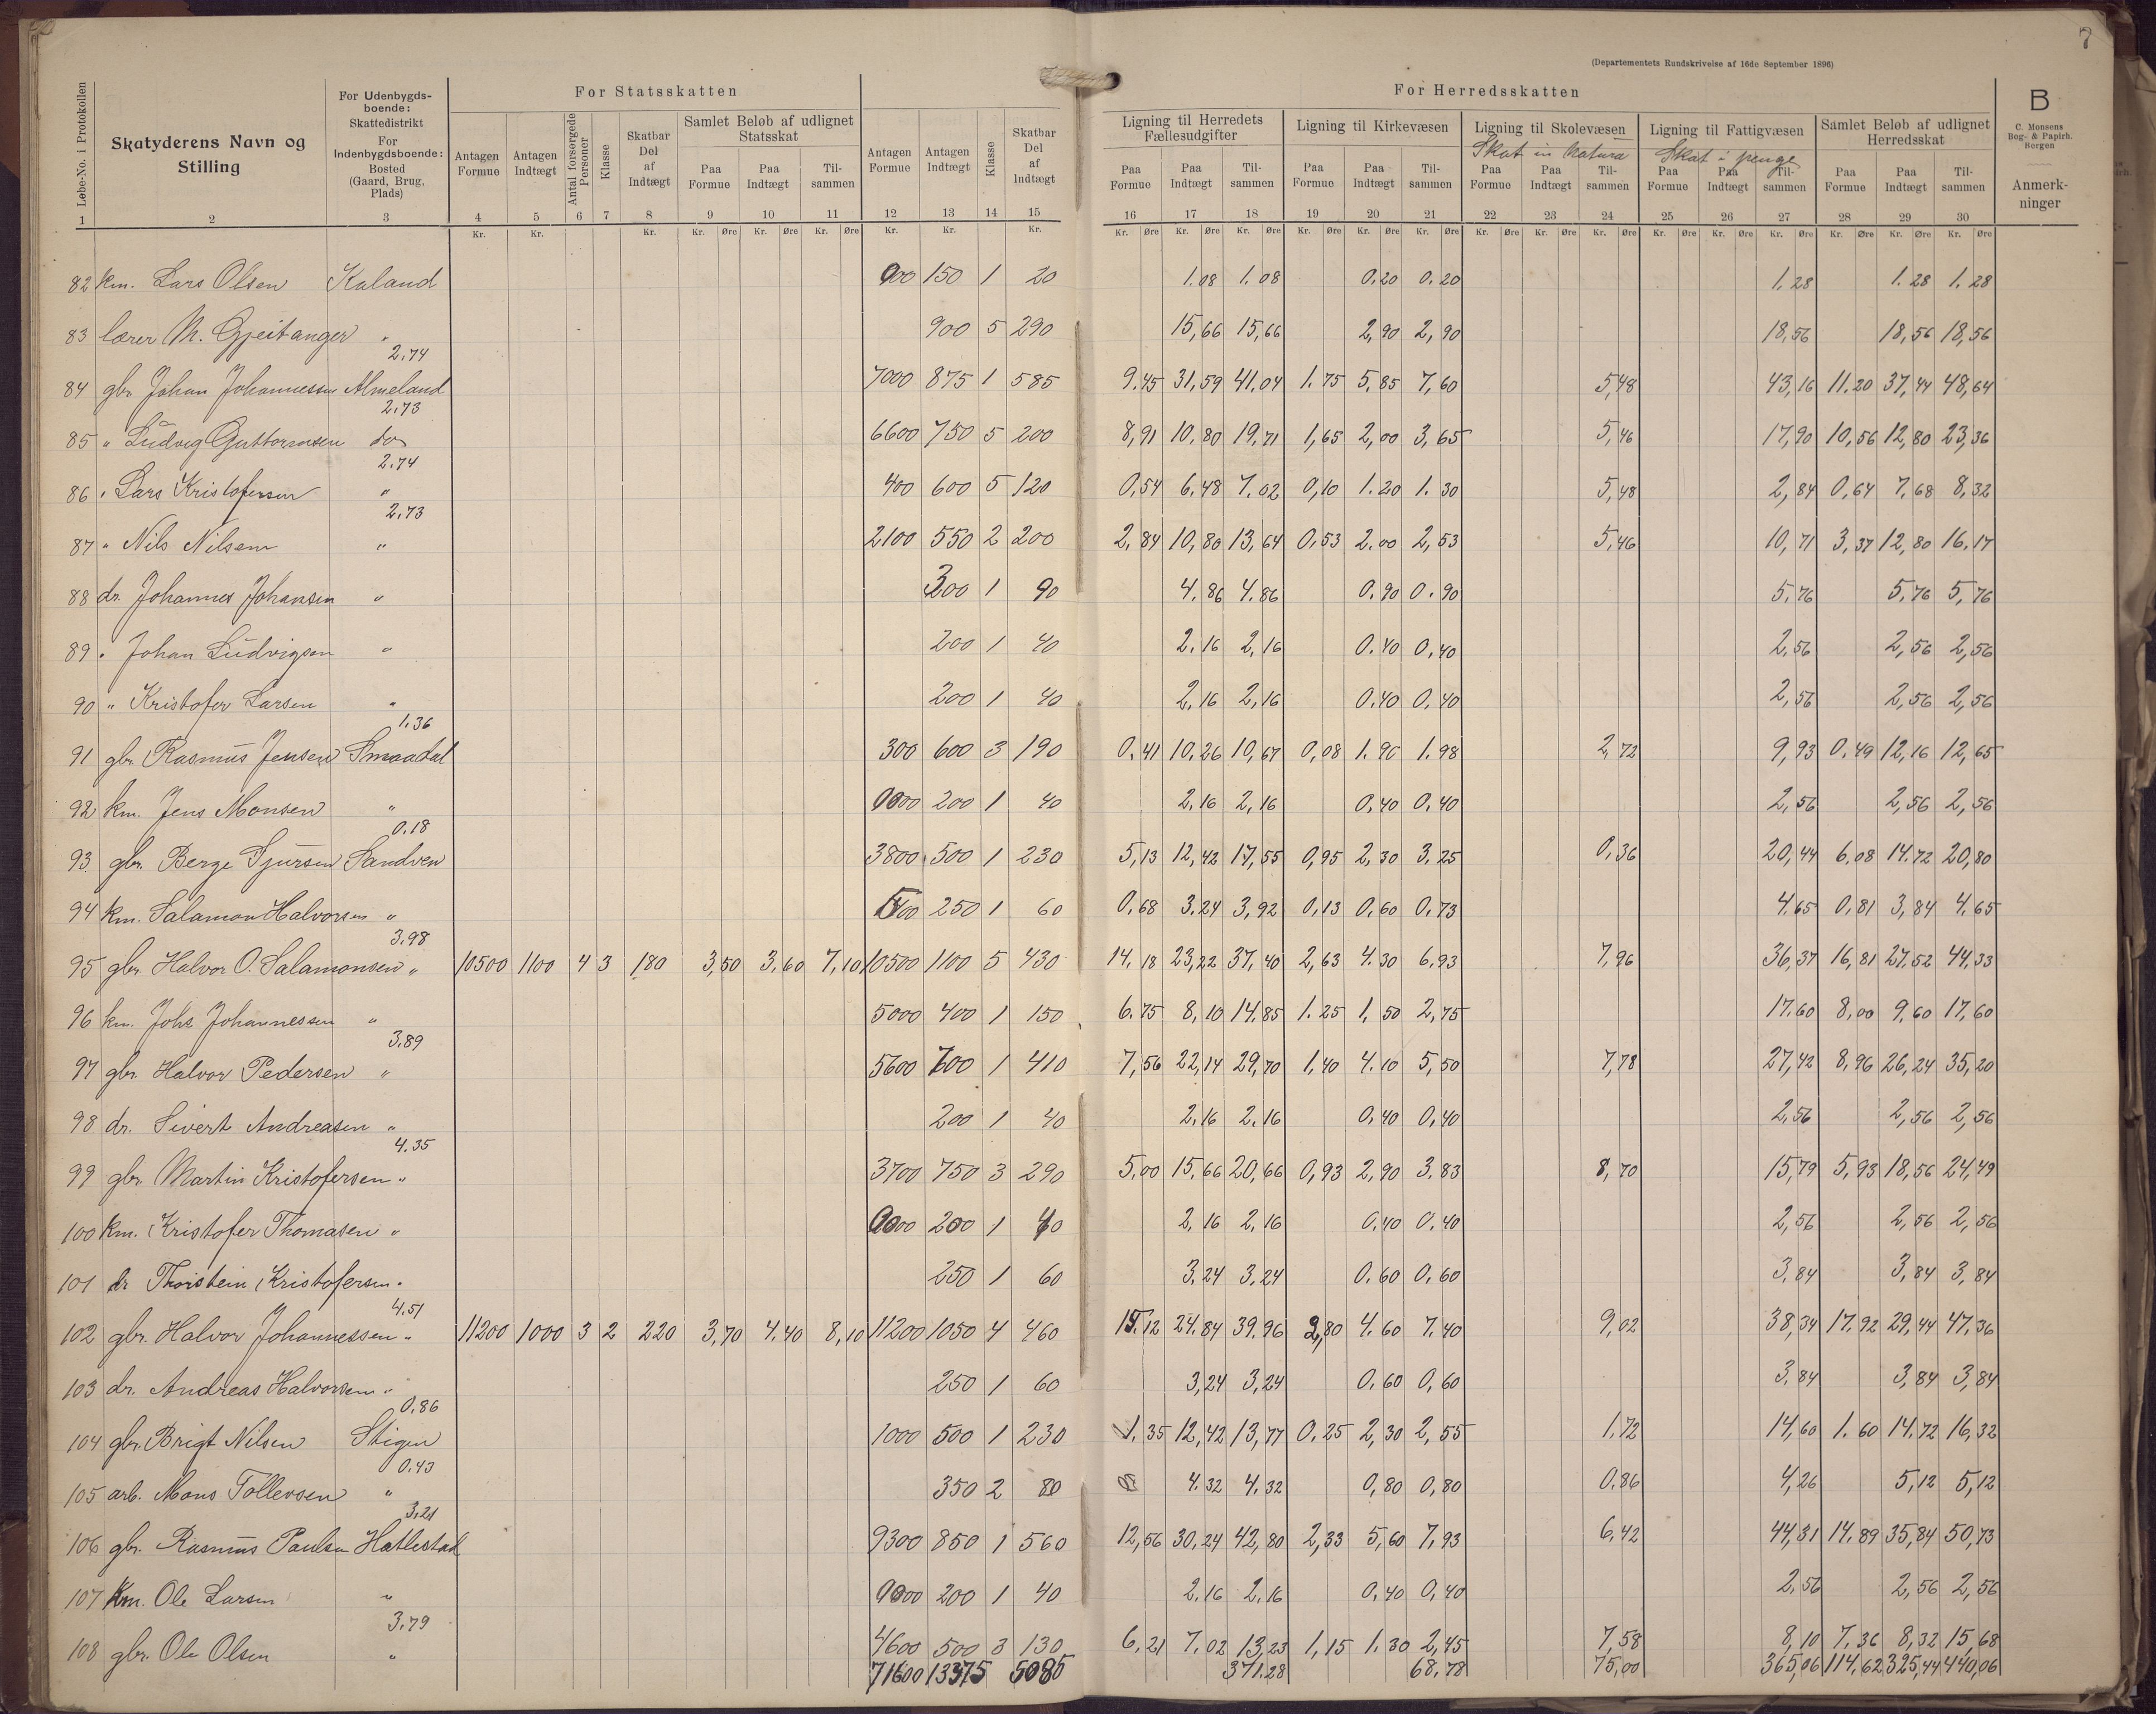 7
(Departementets Rundskrivelse af 16de September 1896)
For Statsskatten
For Herredsskatten
B
C. Monsens Bog- & Papirh. Bergen
Løbe-No. i Protokollen
Skatyderens Navn og Stilling
For Udenbygdsboende: Skattedistrikt For Indenbygdsboende: Bosted (Gaard, Brug, Plads)
Antagen Formue
Antagen Indtægt
Antal forsørgede Personer
Klasse
Skatbar Del af Indtægt
Samlet Beløb af udlignet Statsskat
Paa Formue Paa Indtægt Tilsammen
Antagen Formue
Antagen Indtægt
Klasse
Skatbar Del af Indtægt
Ligning til Herredets Fællesudgifter
Paa Formue Paa Indtægt Tilsammen
Ligning til Kirkevæsen
Paa Formue Paa Indtægt Tilsammen
Ligning til Skolevæsen
Skat in natura
Paa Formue Paa Indtægt Tilsammen
Ligning til Fattigvæsen
Skat i penge
Paa Formue Paa Indtægt Tilsammen
Samlet Beløb af udlignet Herredsskat
Paa Formue Paa Indtægt Tilsammen
Anmerkninger
1 2 3 4 5 6 7 8 9 10 11 12 13 14 15 16 17 18 19 20 21 22 23 24 25 26 27 28 29 30
Kr. Kr. Kr. Kr. Øre Kr. Øre Kr. Øre Kr. Kr. Kr. Kr. Øre Kr. Øre Kr. Øre Kr. Øre Kr. Øre Kr. Øre Kr. Øre Kr. Øre Kr. Øre Kr. Øre Kr. Øre Kr. Øre Kr. Øre Kr. Øre Kr. Øre
82 km. Lars Olsen Kaland 150 1 20 1.08 1.08 0.20 0.20 1.28 1.28 1.28
83 lærer M. Gjeitanger " 900 5 290 15,66 15,66 2,90 2,90 18,56 18,56 18,56
2.74
84 gbr. Johan Johannessen Almeland 7000 875 1 585 9.45 31,59 41.04 1.75 5,85 7,60 5,48 43,16 11.20 37,44 48,64
2.73
85 " Ludvig Guttormsen do 6600 750 5 200 8,91 10,80 19,71 1,65 2,00 3,65 5,46 17,90 10,56 12,80 23,36
2.74
86 " Lars Kristofersen " 400 600 5 120 0,54 6,48 7.02 0,10 1.20 1.30 5,48 2,84 0,64 7,68 8,32
2.73
87 " Nils Nilsen " 2100 550 2 200 2,84 10,80 13,64 0,53 2.00 2,53 5,46 10,71 3,37 12,80 16.17
88 dr. Johannes Johansen " 300 1 90 4.86 4.86 0.90 0.90 5.76 5.76 5,76
89 " Johan Ludvigsen " 200 1 40 2.16 2,16 0.40 0,40 2.56 2,56 2,56
90 " Kristofer Larsen " 200 1 40 2,16 2,16 0.40 0,40 2,56 2,56 2,56
1.36
91 gbr. Rasmus Jensen Smaadal 300 600 3 190 0.41 10,26 10,67 0,08 1.90 1.98 2,72 9,93 0.49 12,16 12,65
92 km. Jens Monsen " 200 1 40 2.16 2,16 0,40 0,40 2.56 2,56 2,56
0.18
93 gbr. Berge Sjursen Sandven 3800 500 1 230 5,13 12,42 17,55 0,95 2,30 3.25 0,36 20,44 6,08 14.72 20,80
94 km. Salamon Halvorsen " 500 250 1 60 0.68 3.24 3,92 0,13 0,60 0.73 4.65 0,81 3,84 4.65
3.98
95 gbr. Halvor O. Salamonsen " 10500 1100 4 3 180 3,50 3,60 7,10 10500 1100 5 430 14.18 23,22 37,40 2,63 4.30 6,93 7,96 36,37 16,81 27.52 44,33
96 km. Johs Johannessen " 5000 400 1 150 6.75 8,10 14.85 1.25 1,50 2,75 17.60 8,00 9,60 17,60
3.89
97 gbr. Halvor Pedersen " 5600 700 1 410 7,56 22,14 29,70 1,40 4.10 5,50 7,78 27,42 8,96 26,24 35,20
98 dr. Sivert Andreasen " 200 1 40 2.16 2.16 0.40 0,40 2.56 2,56 2,56
4.35
99 gbr. Martin Kristofersen " 3700 750 3 290 5,00 15,66 20,66 0,93 2,90 3.83 8,70 15,79 5,93 18,56 24,49
100 km. Kristofer Thomasen " 200 1 40 2,16 2,16 0,40 0,40 2,56 2,56 2,56
101 dr Thorstein Kristofersen " 250 1 60 3.24 3.24 0.60 0,60 3,84 3,84 3,84
4.51
102 gbr. Halvor Johannessen " 11200 1000 3 2 220 3,70 4.40 8,10 11200 1050 4 460 15.12 24.84 39.96 2,80 4.60 7.40 9,02 38,34 17,92 29,44 47.36
103 dr. Andreas Halvorsen " 250 1 60 3,24 3,24 0.60 0,60 3.84 3,84 3,84
0.86
104 gbr. Brigt Nilsen Stigen 1000 500 1 230 1.35 12,42 13,77 0.25 2,30 2,55 1.72 14,60 1.60 14.72 16,32
0.43
105 arb. Mons Tollevsen " 350 2 80 4.32 4.32 0,80 0,80 0.86 4,26 5,12 5,12
3.21
106 gbr. Rasmus Paulsen Hatlestad 9300 850 1 560 12,56 30,24 42,80 2,33 5,60 7,93 6,42 44,31 14.89 35,84 50,73
107 km. Ole Larsen " 200 1 40 2.16 2.16 0,40 0,40 2,56 2,56 2,56
3.79
108 gbr. Ole Olsen " 4600 500 3 130 6,21 7.02 13,23 1,15 1.30 2,45 7,58 8,10 7.36 8,32 15,68
71600 13375 5085 371.28 68,78 75,00 365,06 114,62 325,44 440,06